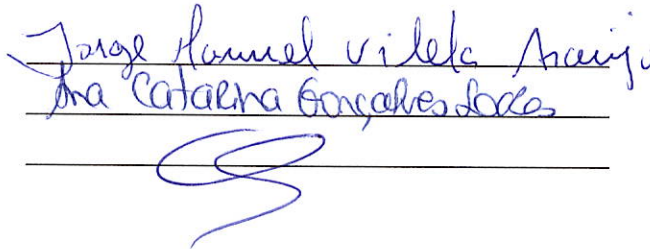 Jorge Manuel Vilela Araújo
Ana Catarina Gonçalves